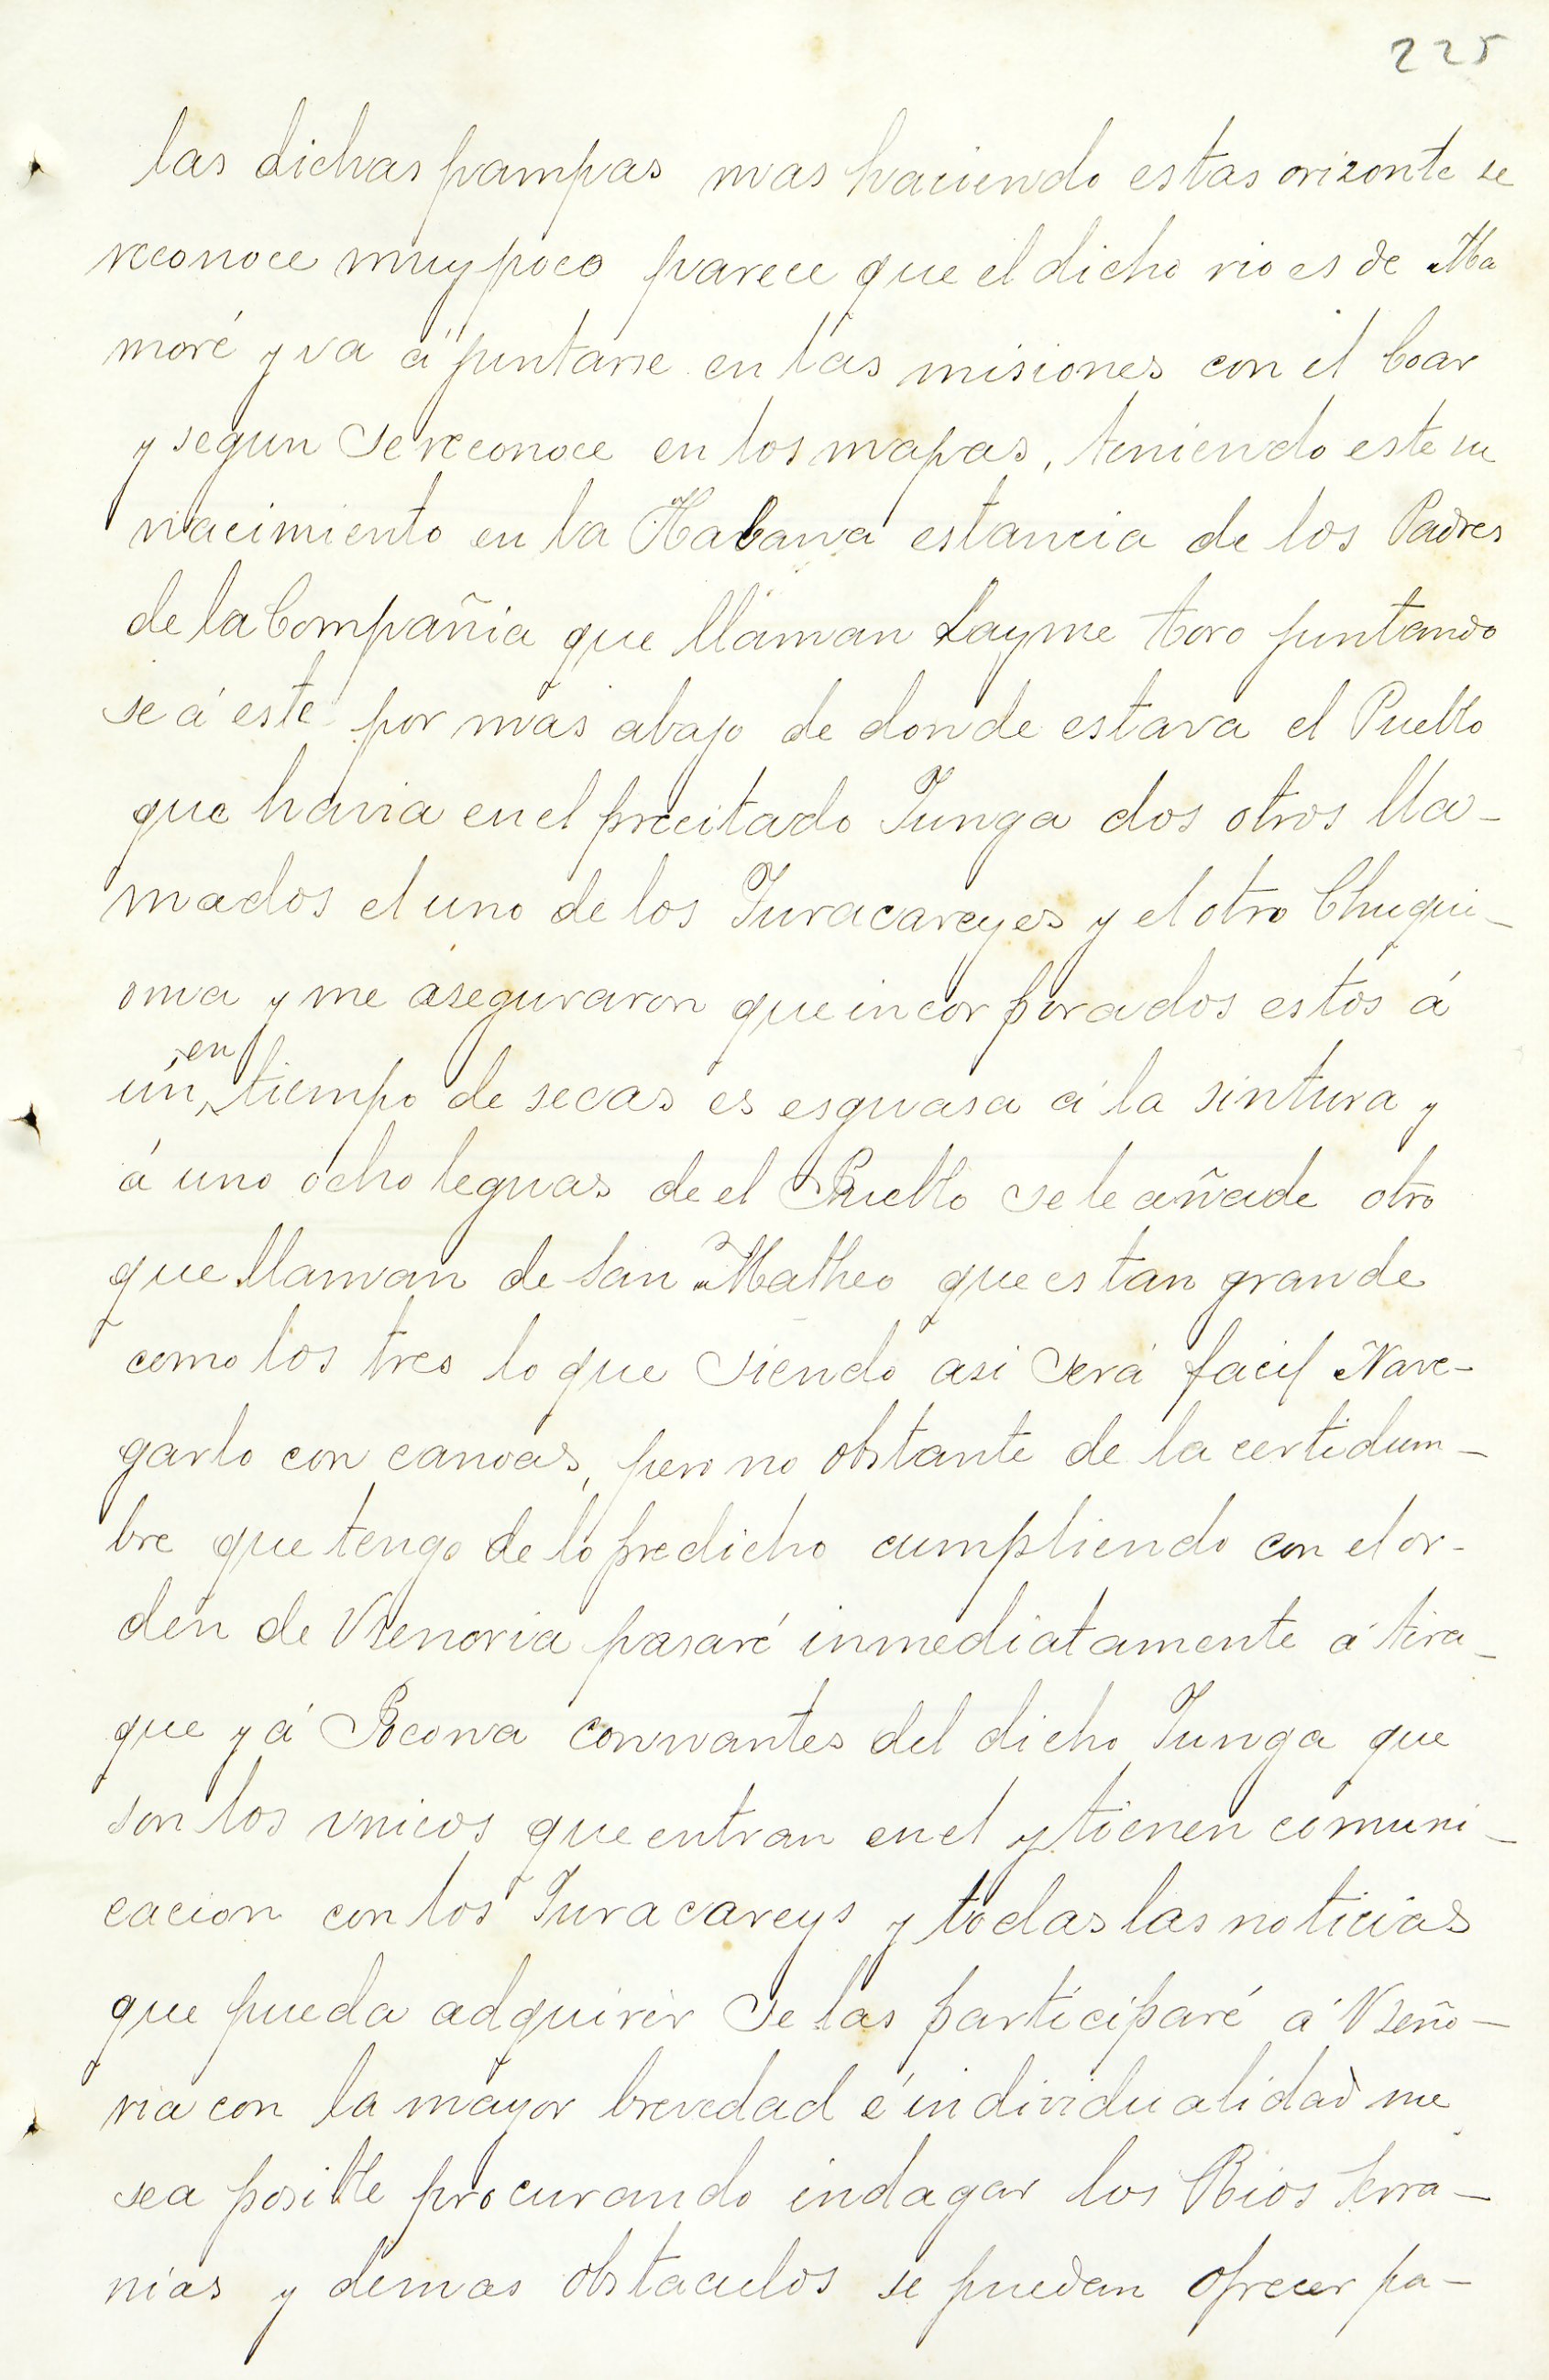 225
las dichas pampas mas haciendo estas orizonte se
reconoce muy poco parece que el dicho rio es de Ma
moré y va á juntarse en las misiones con el Coar
y segun se reconoce en los mapas, teniendo este su
nacimiento en la Habana estancia de los Padres
de la Compañia que llaman Layme toro juntando
se á este por mas abajo de donde estava el Pueblo
que havia en el precitado Yunga dos otros lla-
mados el uno de los Yuracareyes y el otro Chuqui-
oma y me aseguraron que incorporados estos á
en
un tiempo de secas es esguasa á la sintura y
á uno ocho leguas de el Pueblo se le añade otro
que llaman de San Matheo que es tan grande
como los tres lo que siendo asi será facil Nave-
garlo con canoas, pero no obstante de la certidum-
bre que tengo de lo predicho cumpliendo con el or-
den de Vsenoria pasaré inmediatamente á tira-
que y á Pocona connantes del dicho Yunga que
son los vnicos que entran en el y tienen comuni-
cacion con los Yuracareys y todas las noticias
que pueda adquirir se las participaré á Vseño-
ria con la mayor brevedad é individualidad me
sea posible procurando indagar los Rios Serra-
nias y demas obstaculos se puedan ofrecer pa-